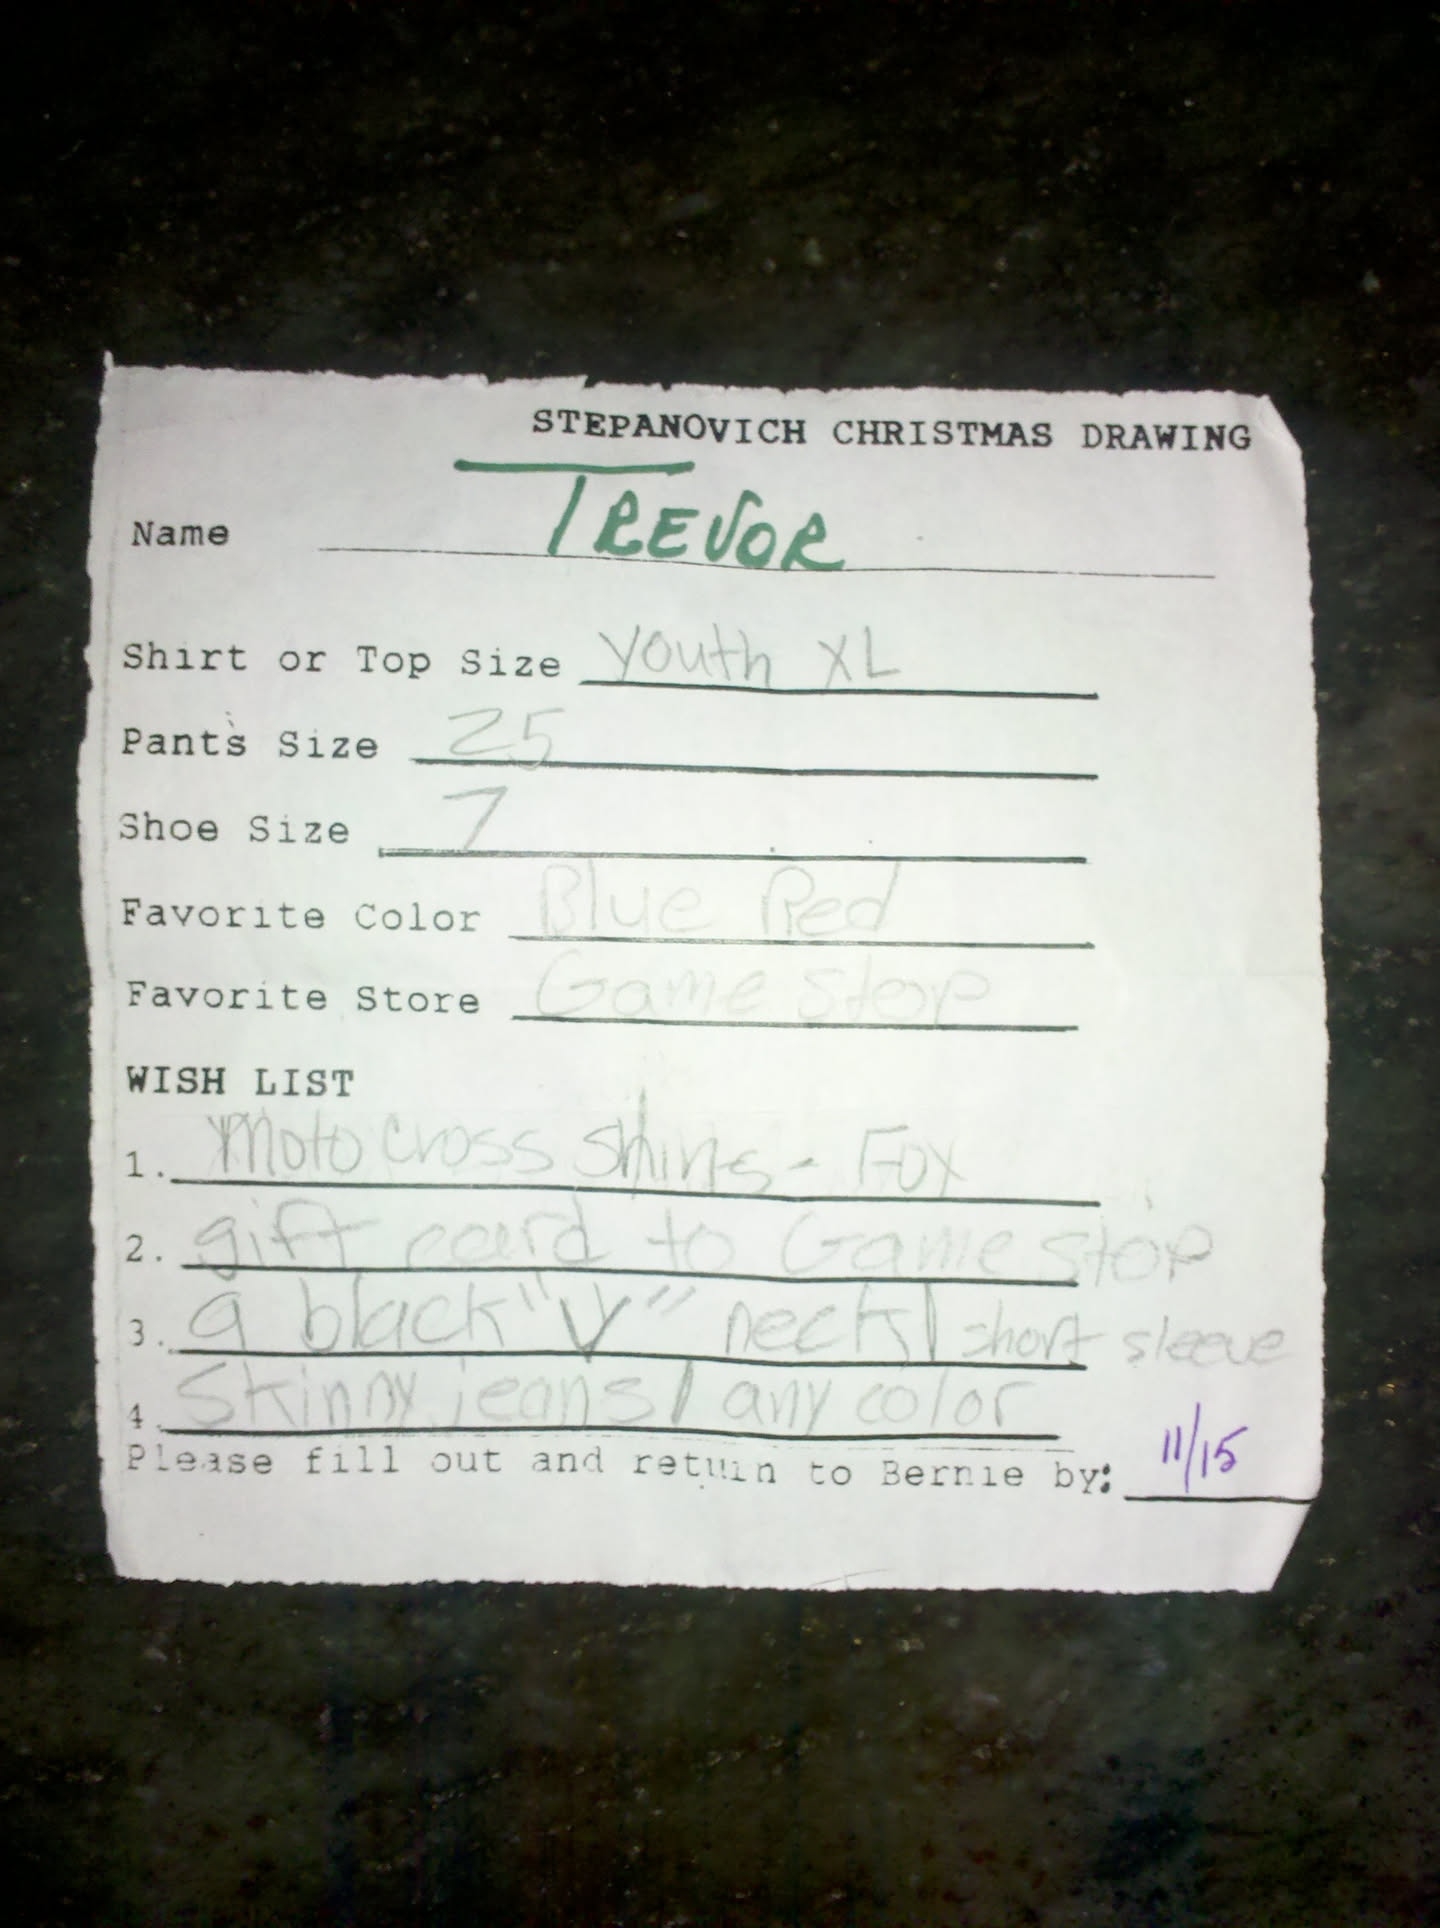 STEPANOVICH CHRISTMAS DRAWING
Name TREVOR
Shirt or Top Size youth XL
Pants Size 25
Shoe Size 7
Favorite Color Blue Red
Favorite Store Game stop
WISH LIST
1. Moto cross shirts - Fox
2. gift card to Game stop
3. a black "V" neck / short sleeve
4. Skinny jeans / any color
Please fill out and return to Bernie by: 11/15